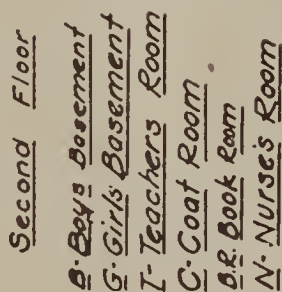 Second Floor
B- Boys Basement
G- Girls Basement
T- Teachers Room
C- Coat Room
B.R. Book Room
N- Nurses Room